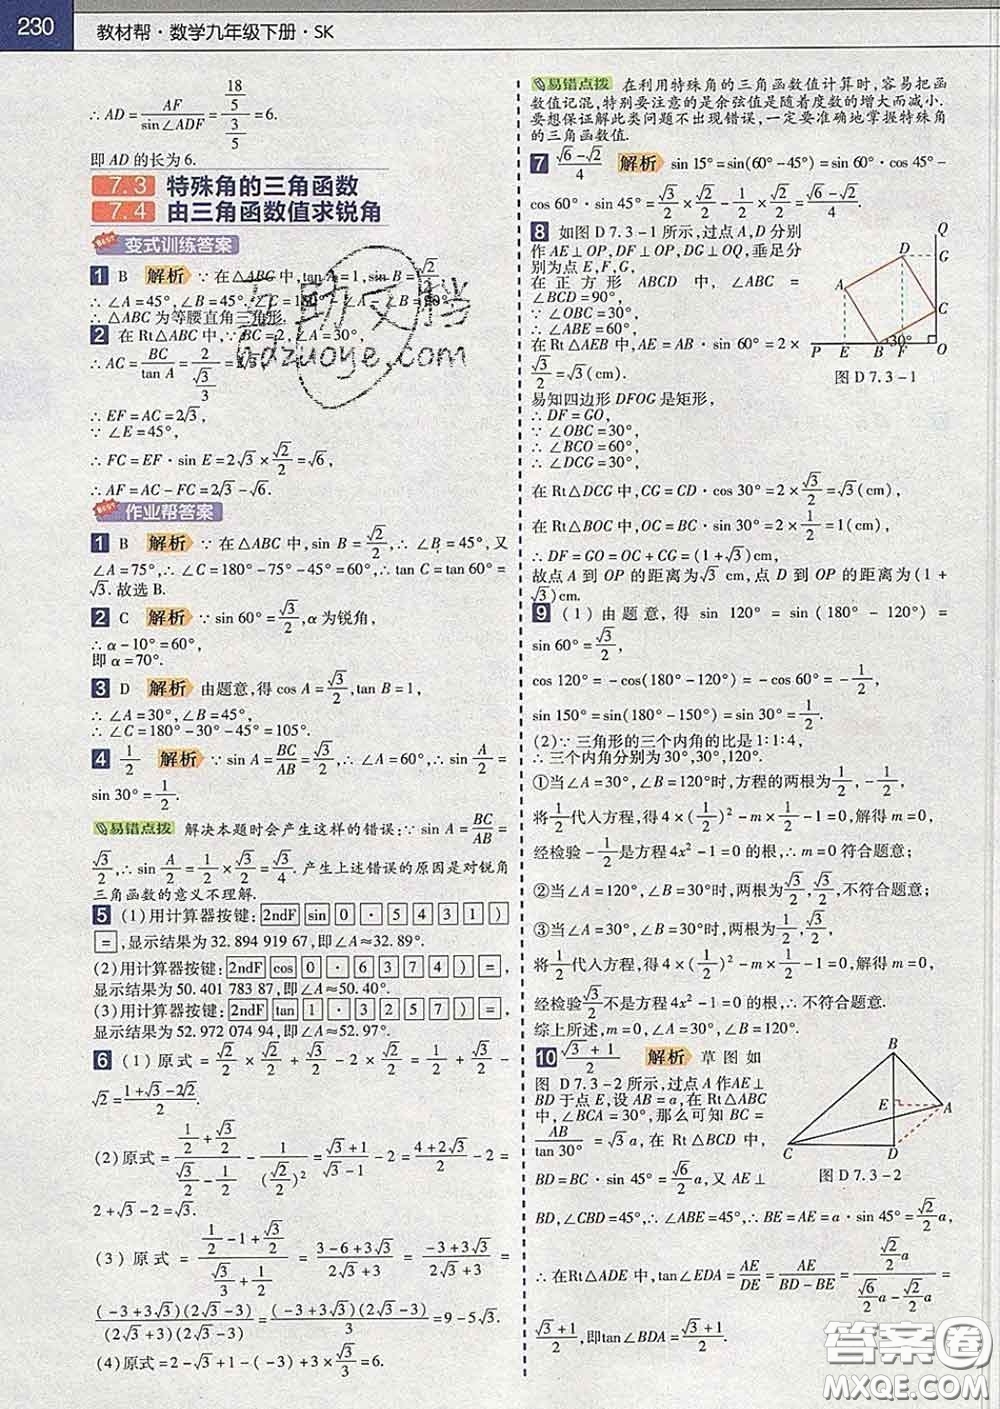 230 教材帮·数学九年级下册·SK
∴ AD = AF/sin∠ADF = (18/5)/(3/5) = 6.
即 AD 的长为 6.
7.3 特殊角的三角函数
7.4 由三角函数值求锐角
变式训练答案
1 B 解析 ∵ 在△ABC 中,tan A = 1,sin B = √2/2,
∴ ∠A = 45°,∠B = 45°,
∴ △ABC 为等腰直角三角形.
2 在 Rt△ABC 中,∵ BC = 2,∠A = 30°,
∴ AC = BC/tan A = 2/(√3/3) = 2√3,
∴ EF = AC = 2√3,
∵ ∠E = 45°,
∴ FC = EF·sin E = 2√3 × √2/2 = √6,
∴ AF = AC - FC = 2√3 - √6.
作业帮答案
1 B 解析 ∵ 在△ABC 中,sin B = √2/2,∴ ∠B = 45°,又
∠A = 75°,∴ ∠C = 180° - 75° - 45° = 60°,∴ tan C = tan 60° =
√3. 故选 B.
2 C 解析 ∵ sin 60° = √3/2,α 为锐角,
∴ α - 10° = 60°,
即 α = 70°.
3 D 解析 由题意,得 cos A = √3/2,tan B = 1,
∴ ∠A = 30°,∠B = 45°,
∴ ∠C = 180° - 30° - 45° = 105°.
4 1/2 解析 ∵ sin A = BC/AB = √3/2,∴ ∠A = 60°,∴ sin A/2 =
sin 30° = 1/2.
易错点拨 解决本题时会产生这样的错误:∵ sin A = BC/AB =
√3/2,∴ sin A/2 = 1/2 × √3/2 = √3/4. 产生上述错误的原因是对锐角
三角函数的意义不理解.
5 (1)用计算器按键: 2ndF sin 0 · 5 4 3 1 )
= ,显示结果为 32.894 919 67,即∠A≈32.89°.
(2)用计算器按键: 2ndF cos 0 · 6 3 7 4 ) = ,
显示结果为 50.401 783 87,即∠A≈50.40°.
(3)用计算器按键: 2ndF tan 1 · 3 2 5 7 ) = ,
显示结果为 52.972 074 94,即∠A≈52.97°.
6 (1)原式 = √2/2 × √2/2 + √2/2 - 2 × √2/2 = 1/2 + √3/2 -
√2 = (1+√3-2√2)/2.
(2)原式 = (1/2+√3/2)/(√3/2-1/2) - 2 = (√3+1)/(√3-1) - 2 = (4+2√3)/2 - 2 =
2 + √3 - 2 = √3.
(3)原式 = (1/2-1+√3/2)/(√3/3+1/2) = (3-6+3√3)/(2√3+3) = (-3+3√3)/(2√3+3) =
(-3+3√3)(2√3-3)/(2√3+3)(2√3-3) = (-3+3√3)(2√3-3)/3 = 9 - 5√3.
(4)原式 = 2 - √3 - 1 - (-3) + 3 × √3/3 = 6.
易错点拨 在利用特殊角的三角函数值计算时,容易把函
数值记混,特别要注意的是余弦值是随着度数的增大而减小.
要想保证解此类问题不出现错误,一定要准确地掌握特殊角
的三角函数值.
7 (√6-√2)/4 解析 sin 15° = sin(60° - 45°) = sin 60°·cos 45° -
cos 60°·sin 45° = √3/2 × √2/2 - 1/2 × √2/2 = (√6-√2)/4.
8 如图 D 7.3-1 所示,过点 A,D 分别
作 AE⊥OP,DF⊥OP,DG⊥OQ,垂足分
别为点 E,F,G,
在正方形 ABCD 中,∠ABC =
∠BCD = 90°,
∵ ∠OBC = 30°,
∴ ∠ABE = 60°,
在 Rt△AEB 中,AE = AB·sin 60° = 2 ×
√3/2 = √3(cm),
Q
D G
A
C
30°
P E B F O
图 D 7.3-1
易知四边形 DFOG 是矩形,
∴ DF = GO,
∵ ∠OBC = 30°,
∴ ∠BCO = 60°,
∴ ∠DCG = 30°,
在 Rt△DCG 中,CG = CD·cos 30° = 2 × √3/2 = √3(cm),
在 Rt△BOC 中,OC = BC·sin 30° = 2 × 1/2 = 1(cm),
∴ DF = GO = OC + CG = (1 + √3)cm,
故点 A 到 OP 的距离为√3 cm,点 D 到 OP 的距离为(1 +
√3)cm.
9 (1)由题意,得 sin 120° = sin(180° - 120°) =
sin 60° = √3/2,
cos 120° = -cos(180° - 120°) = -cos 60° = -1/2,
sin 150° = sin(180° - 150°) = sin 30° = 1/2.
(2)∵ 三角形的三个内角的比是 1:1:4,
∴ 三个内角分别为 30°,30°,120°.
①当∠A = 30°,∠B = 120°时,方程的两根为1/2,-1/2,
将1/2代入方程,得 4 × (1/2)² - m × 1/2 - 1 = 0,解得 m = 0,
经检验 -1/2是方程 4x² - 1 = 0 的根,∴ m = 0 符合题意;
②当∠A = 120°,∠B = 30°时,方程的两根为√3/2,√3/2,不符合题意;
③当∠A = 30°,∠B = 30°时,方程的两根为1/2,√3/2,
将1/2代入方程,得 4 × (1/2)² - m × 1/2 - 1 = 0,解得 m = 0,
经检验√3/2不是方程 4x² - 1 = 0 的根,∴ 不符合题意.
综上所述,m = 0,∠A = 30°,∠B = 120°.
10 (√3+1)/2 解析 草图如
图 D 7.3-2 所示,过点 A 作 AE⊥
BD 于点 E,设 AB = a,在 Rt△ABC
中,∠BCA = 30°,那么可知 BC =
AB/tan 30° = √3 a,在 Rt△BCD 中,
BD = BC·sin 45° = √6/2 a,又 AE⊥
B
E A
C D
图 D 7.3-2
BD,∠CBD = 45°,∴ ∠ABE = 45°,∴ BE = AE = a·sin 45° = √2/2 a,
∴ 在Rt△ADE 中,tan∠EDA = AE/DE = AE/(BD-BE) = (√2/2 a)/(√6/2 a - √2/2 a) =
(√3+1)/2,即tan∠BDA = (√3+1)/2.
答案圈
MXQE.COM